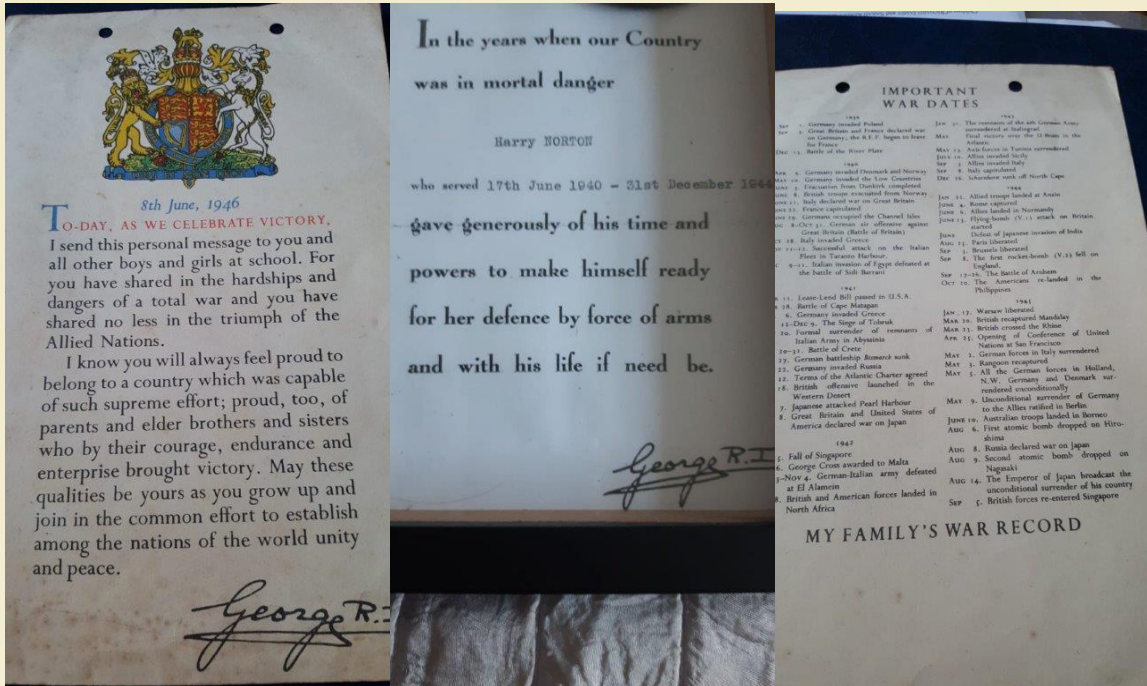 8th June, 1946
TO-DAY, AS WE CELEBRATE VICTORY,
I send this personal message to you and
all other boys and girls at school. For
you have shared in the hardships and
dangers of a total war and you have
shared no less in the triumph of the
Allied Nations.
I know you will always feel proud to
belong to a country which was capable
of such supreme effort; proud, too, of
parents and elder brothers and sisters
who by their courage, endurance and
enterprise brought victory. May these
qualities be yours as you grow up and
join in the common effort to establish
among the nations of the world unity
and peace.
George R.I
In the years when our Country
was in mortal danger
Harry NORTON
who served 17th June 1940 - 31st December 1944
gave generously of his time and
powers to make himself ready
for her defence by force of arms
and with his life if need be.
George R.I
IMPORTANT
WAR DATES
1939
SEP 1. Germany invaded Poland
SEP 3. Great Britain and France declared war
on Germany; the B.E.F. began to leave
for France
DEC 13. Battle of the River Plate
1940
APR 9. Germany invaded Denmark and Norway
MAY 10. Germany invaded the Low Countries
JUNE 3. Evacuation from Dunkirk completed
JUNE 8. British troops evacuated from Norway
JUNE 11. Italy declared war on Great Britain
JUNE 22. France capitulated
JUNE 29. Germans occupied the Channel Isles
8-OCT 31. German air offensive against
Great Britain (Battle of Britain)
28. Italy invaded Greece
11-12. Successful attack on the Italian
Fleet in Taranto Harbour.
9-11. Italian invasion of Egypt defeated at
the battle of Sidi Barrani
1941
11. Lease-Lend Bill passed in U.S.A.
28. Battle of Cape Matapan
6. Germany invaded Greece
12-DEC 9. The Siege of Tobruk
20. Formal surrender of remnants of
Italian Army in Abyssinia
20-31. Battle of Crete
27. German battleship Bismarck sunk
22. Germany invaded Russia
12. Terms of the Atlantic Charter agreed
18. British offensive launched in the
Western Desert
7. Japanese attacked Pearl Harbour
8. Great Britain and United States of
America declared war on Japan
1942
5. Fall of Singapore
6. George Cross awarded to Malta
3-NOV 4. German-Italian army defeated
at El Alamein
8. British and American forces landed in
North Africa
1943
JAN 31. The remnants of the 6th German Army
surrendered at Stalingrad
MAY Final victory over the U-Boats in the
Atlantic
MAY 13. Axis forces in Tunisia surrendered
JULY 10. Allies invaded Sicily
SEP 3. Allies invaded Italy
SEP 8. Italy capitulated
DEC 26. Scharnhorst sunk off North Cape
1944
JAN 22. Allied troops landed at Anzio
JUNE 4. Rome captured
JUNE 6. Allies landed in Normandy
JUNE 13. Flying-bomb (V.1) attack on Britain
started
JUNE Defeat of Japanese invasion of India
AUG 25. Paris liberated
SEP 3. Brussels liberated
SEP 8. The first rocket-bomb (V.2) fell on
England.
SEP 17-26. The Battle of Arnhem
OCT 20. The Americans re-landed in the
Philippines
1945
JAN 17. Warsaw liberated
MAR 20. British recaptured Mandalay
MAR 23. British crossed the Rhine
APR 25. Opening of Conference of United
Nations at San Francisco
MAY 2. German forces in Italy surrendered
MAY 3. Rangoon recaptured
MAY 5. All the German forces in Holland,
N.W. Germany and Denmark sur-
rendered unconditionally
MAY 9. Unconditional surrender of Germany
to the Allies ratified in Berlin
JUNE 10. Australian troops landed in Borneo
AUG 6. First atomic bomb dropped on Hiro-
shima
AUG 8. Russia declared war on Japan
AUG 9. Second atomic bomb dropped on
Nagasaki
AUG 14. The Emperor of Japan broadcast the
unconditional surrender of his country
SEP 5. British forces re-entered Singapore
MY FAMILY'S WAR RECORD